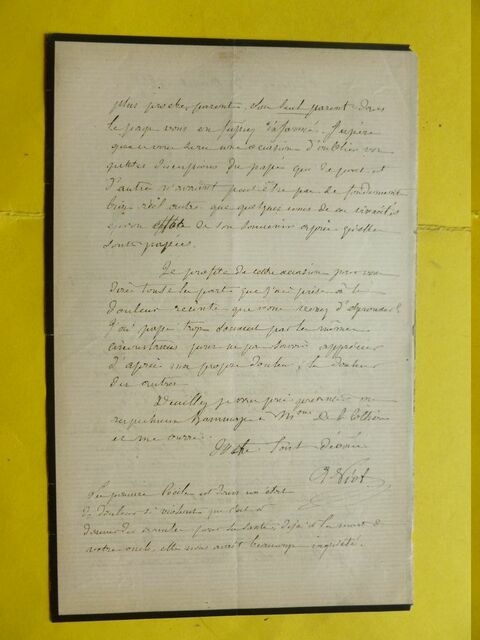 plus proches parents, son seul parent dans
le pays vous en fussiez informé. J'espère
que ce vous sera une occasion d'oublier vos
petites dissensions du passé qui de part et
d'autre n'avaient peut-être pas de fondement
bien réel autre que quelques unes de ces rivalités
qu'on efface de son souvenir après qu'elles
sont passées.
Je profite de cette occasion pour vous
dire toute la part que j'ai prise à la
douleur récente que vous venez d'éprouver.
J'ai passé trop souvent par les mêmes
circonstances pour ne pas savoir apprécier
d'après ma propre douleur, la douleur
des autres.
Veuillez je vous prie présenter mes
respectueux hommages à Mme De
et me croire
Votre tout dévoué
La pauvre est dans un état
de douleur si violent que c'est à
donner des craintes pour sa santé, déjà à la mort de
votre oncle, elle nous avait beaucoup inquiété.